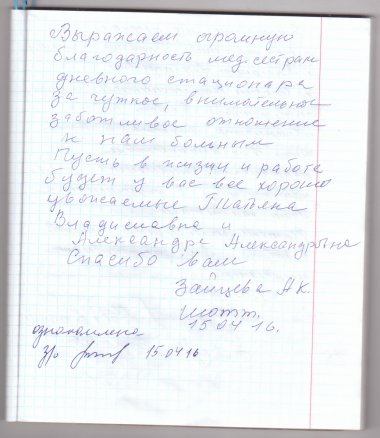 Выражаем огромную
благодарность мед.сестрам
дневного стационара
за чуткое, внимательное
заботливое отношение
к нам больным
Пусть в жизни и работе
будет у вас все хорошо
уважаемые Татьяна
Владиславна и
Александра Александровна
Спасибо вам
Зайцева А.К.
15.04 16.
ознакомлена
15.04 16